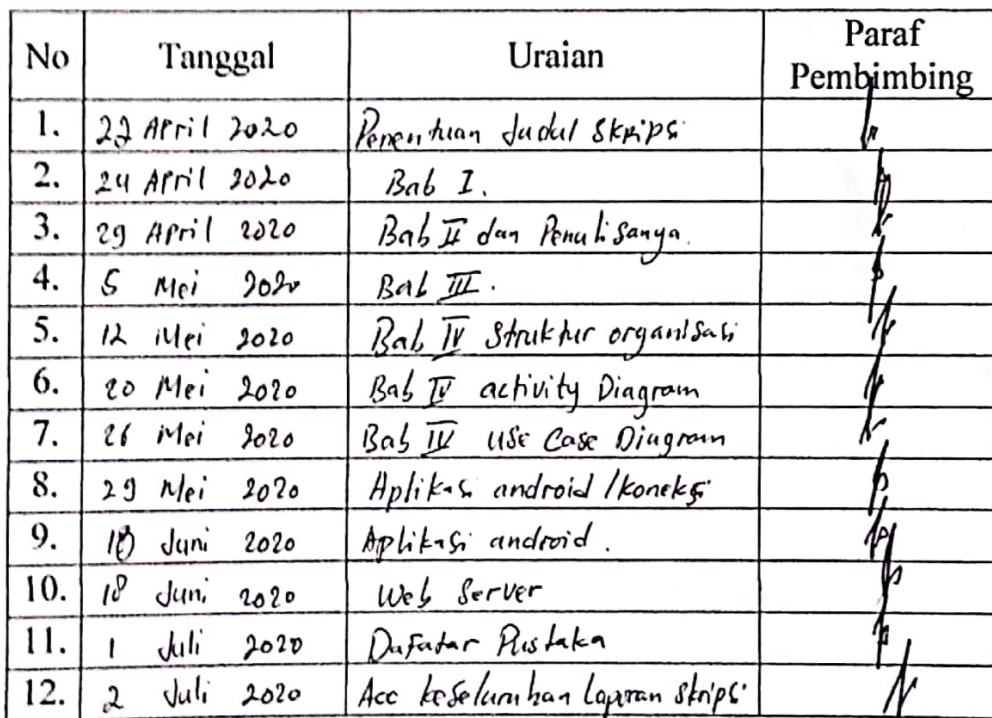 No Tanggal Uraian Paraf Pembimbing
1. 22 April 2020 Penentuan Judul Skripsi
2. 24 April 2020 Bab I.
3. 29 April 2020 Bab II dan Penulisanya.
4. 5 Mei 2020 Bab III.
5. 12 Mei 2020 Bab IV Struktur organisasi
6. 20 Mei 2020 Bab IV activity Diagram
7. 26 Mei 2020 Bab IV Use Case Diagram
8. 29 Mei 2020 Aplikasi android / koneksi
9. Juni 2020 Aplikasi android.
10. 18 Juni 2020 Web Server
11. 1 Juli 2020 Dafatar Pustaka
12. 2 Juli 2020 Acc keseluruhan Laporan Skripsi